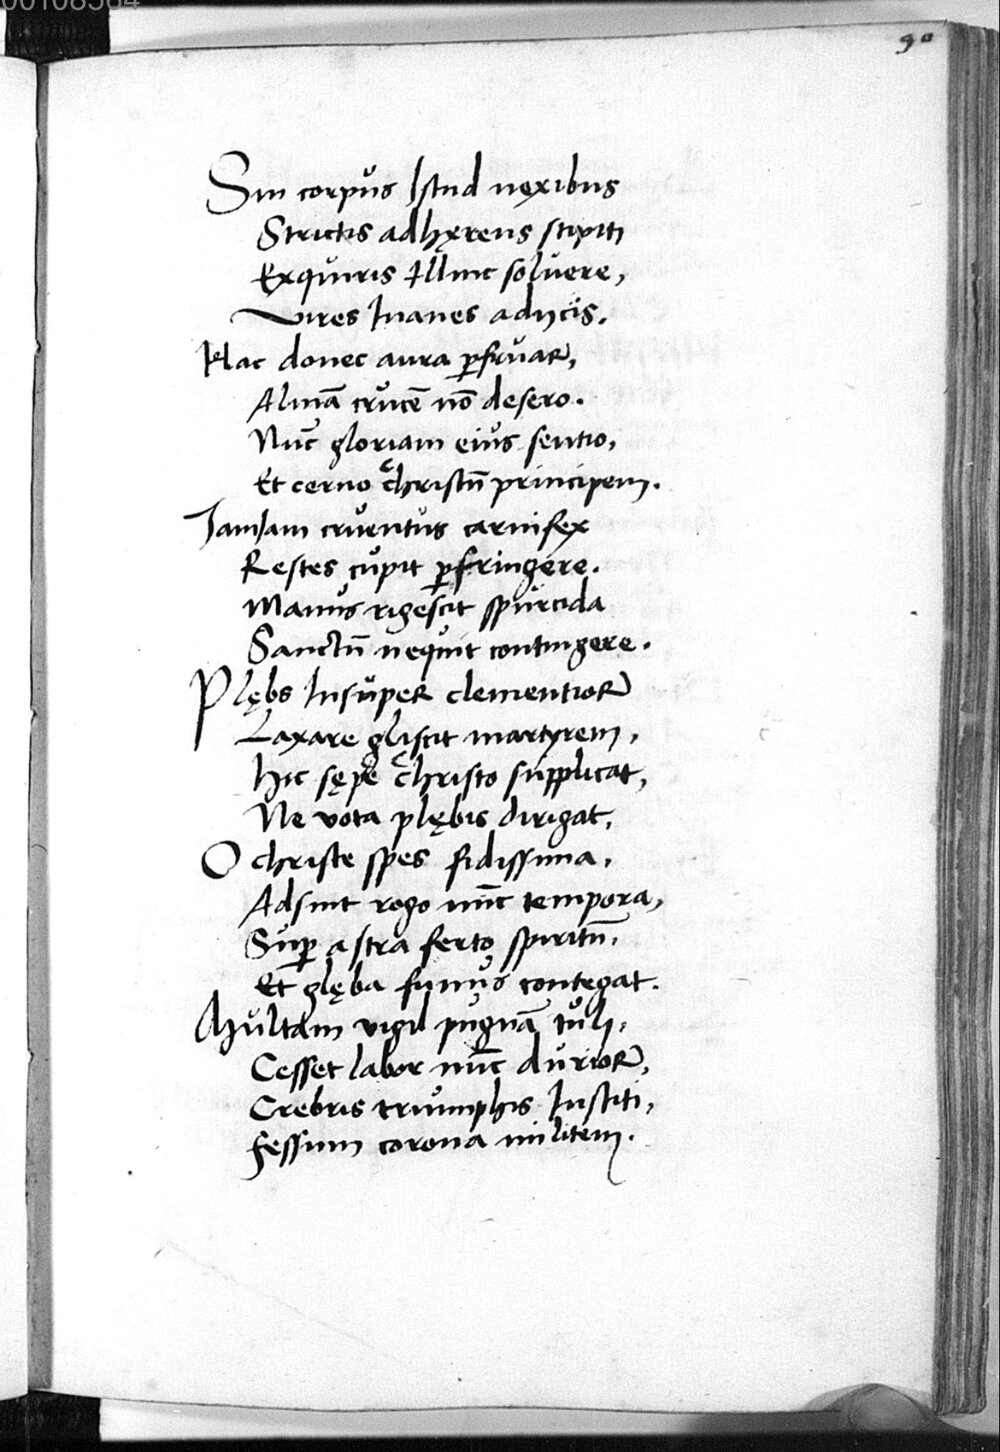 00108564
90
Sin corpus Istud nexibus
Strictis adhęrens stipiti
Exquiris Illinc soluere,
Vires Inanes adijcis.
Hac donec aura ꝑfruar,
Almā crucē nō desero.
Nūc gloriam eius sentio,
Et cerno christū principem.
JamJam cruentus carnifex
Restes cupit ꝑfringere.
Manus rigescit spurcida
Sanctū nequit contingere.
Plębs Insuper clementior
Laxare gliscit martyrem,
Hic sępe christo supplicat,
Ne vota plębis dirigat,
O christe spes fidissima,
Adsint rogo nūc tempora,
Suꝑ astra ferto spiritū,
Et glęba funus contegat.
Multam vigil pugnā tuli,
Cesset labor nūc durior,
Crebris triumphis Institi,
fessum corona militem.